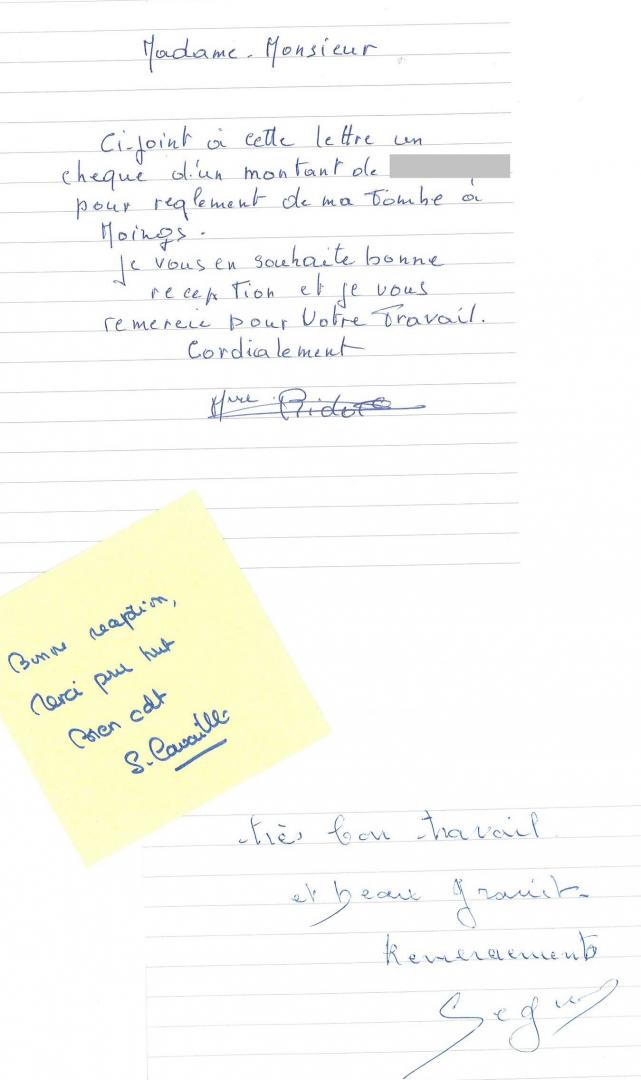 Madame. Monsieur
Ci-joint à cette lettre un
cheque d'un montant de
pour reglement de ma Tombe à
Moings.
Je vous en souhaite bonne
reception et je vous
remercie pour Votre Travail.
Cordialement
Mme
Bonne reception,
Merci pour tout
Bien cdt
S. Cavaillé
très bon travail
et beau granit
Remerciements